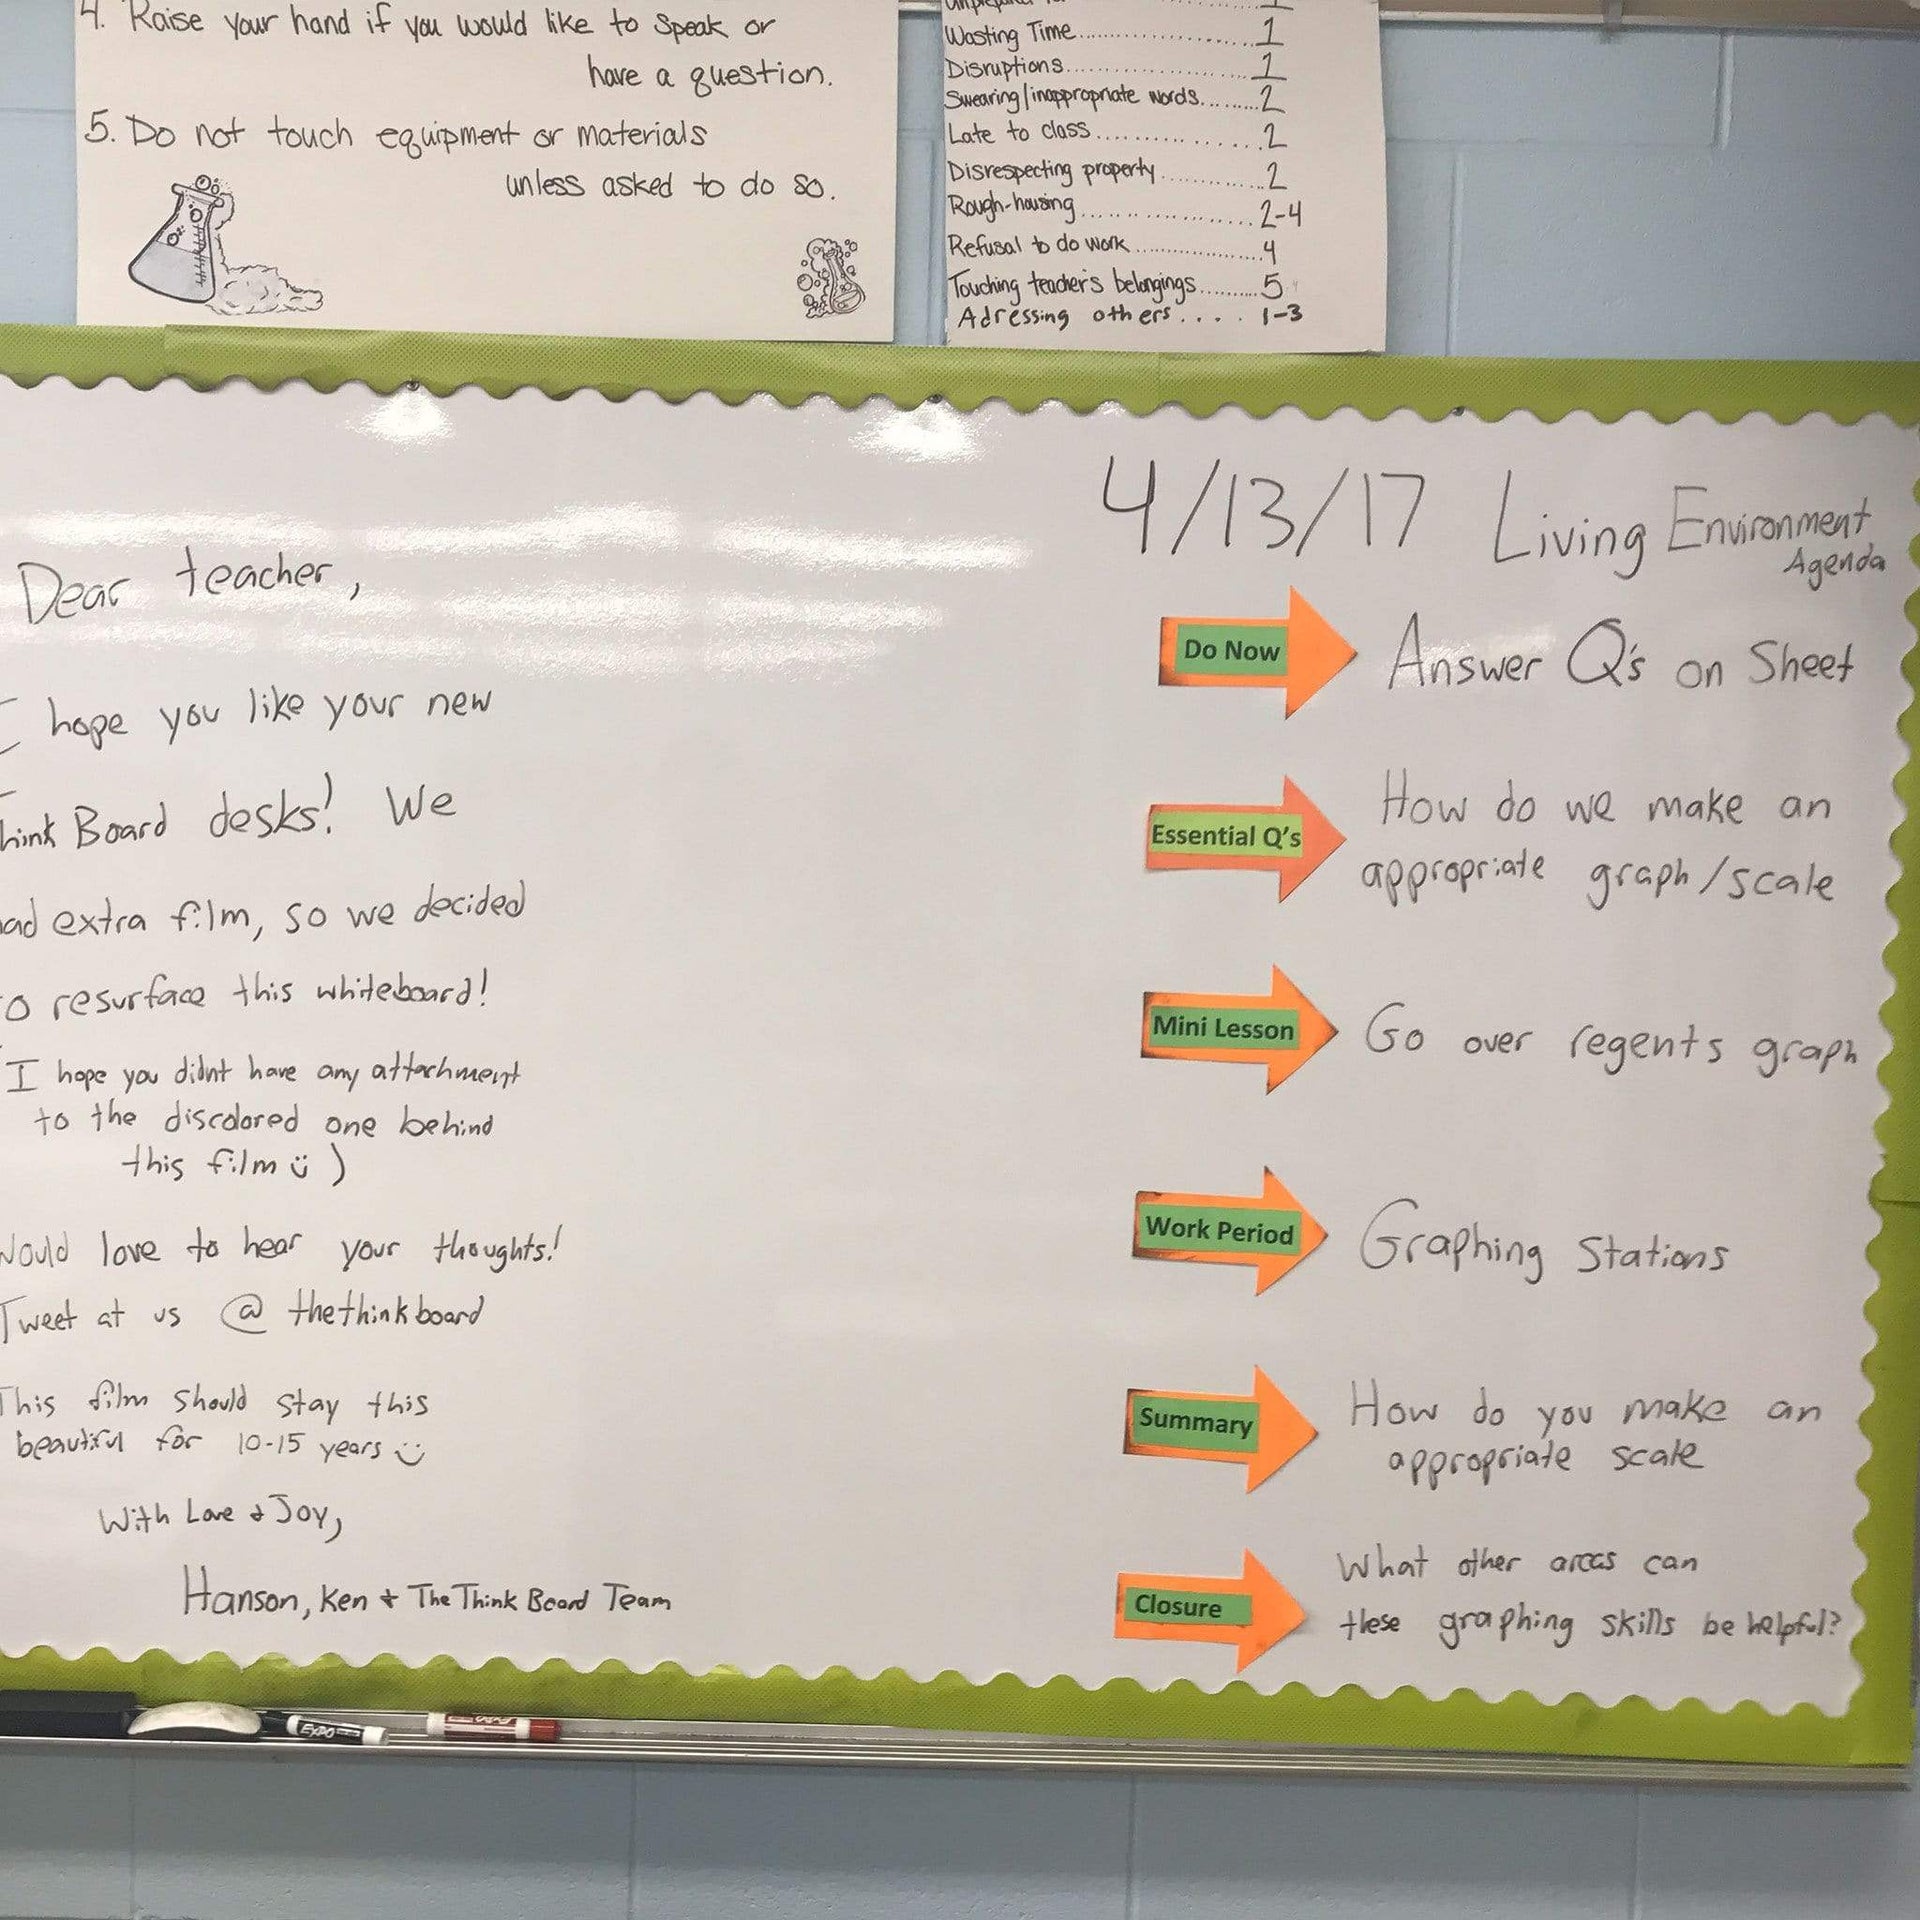 4. Raise your hand if you would like to speak or
have a question.
5. Do not touch equipment or materials
unless asked to do so.
Wasting Time 1
Disruptions 1
Swearing/inappropriate words 2
Late to class 2
Disrespecting property 2
Rough-housing 2-4
Refusal to do work 4
Touching teacher's belongings 5
Adressing others 1-3
Dear teacher,
I hope you like your new
Board desks! We
extra film, so we decided
resurface this whiteboard!
I hope you didnt have any attachment
to the discolored one behind
this film )
Would love to hear your thoughts!
Tweet at us @ thethinkboard
This film should stay this
beautiful for 10-15 years
With Love & Joy,
Hanson, Ken + The Think Board Team
4/13/17 Living Environment
Agenda
Do Now Answer Q's on Sheet
Essential Q's How do we make an
appropriate graph/scale
Mini Lesson Go over regents graph
Work Period Graphing Stations
Summary How do you make an
appropriate scale
Closure What other areas can
these graphing skills be helpful?
EXPO